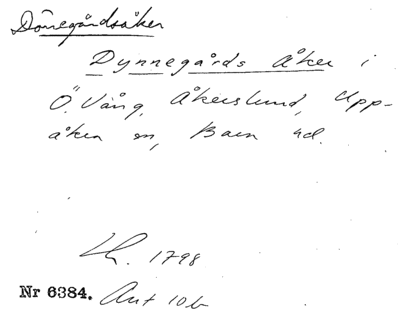 Dönegårdsåker
Dynnegårds Åker i
Ö. Vång, Åkerslund, Upp-
åkra sn, Bara hd.
Lh. 1798
Nr 6384. Ant 10b